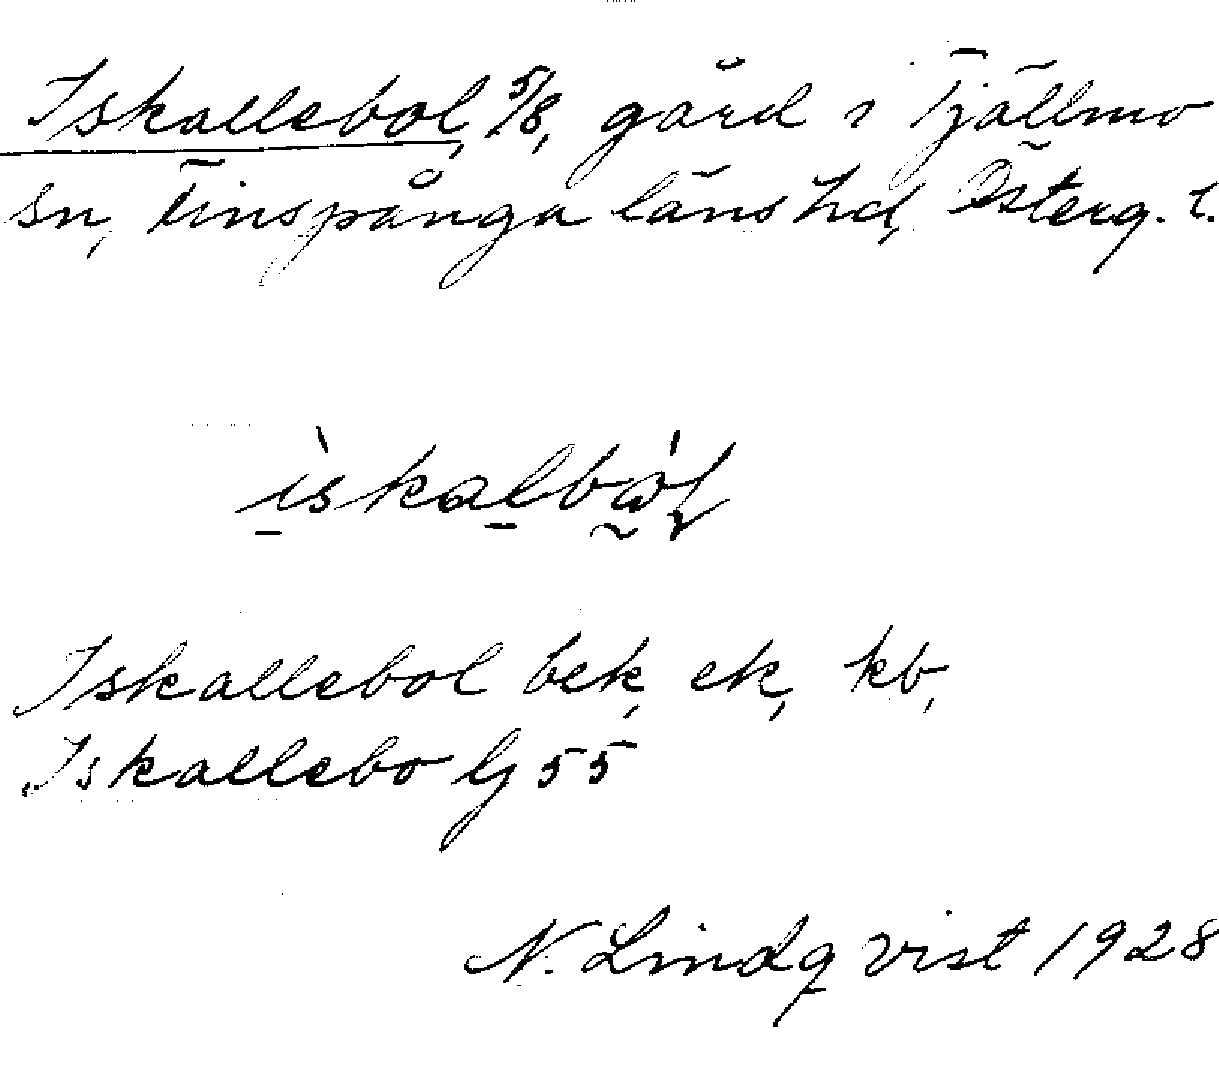 Iskallebol, 5/8, gård i Tjällmo
sn, Finspånga läns hd, Österg. l.
Iskallebol bek, ek, kb,
Iskallebo Gj 55
N. Lindqvist 1928